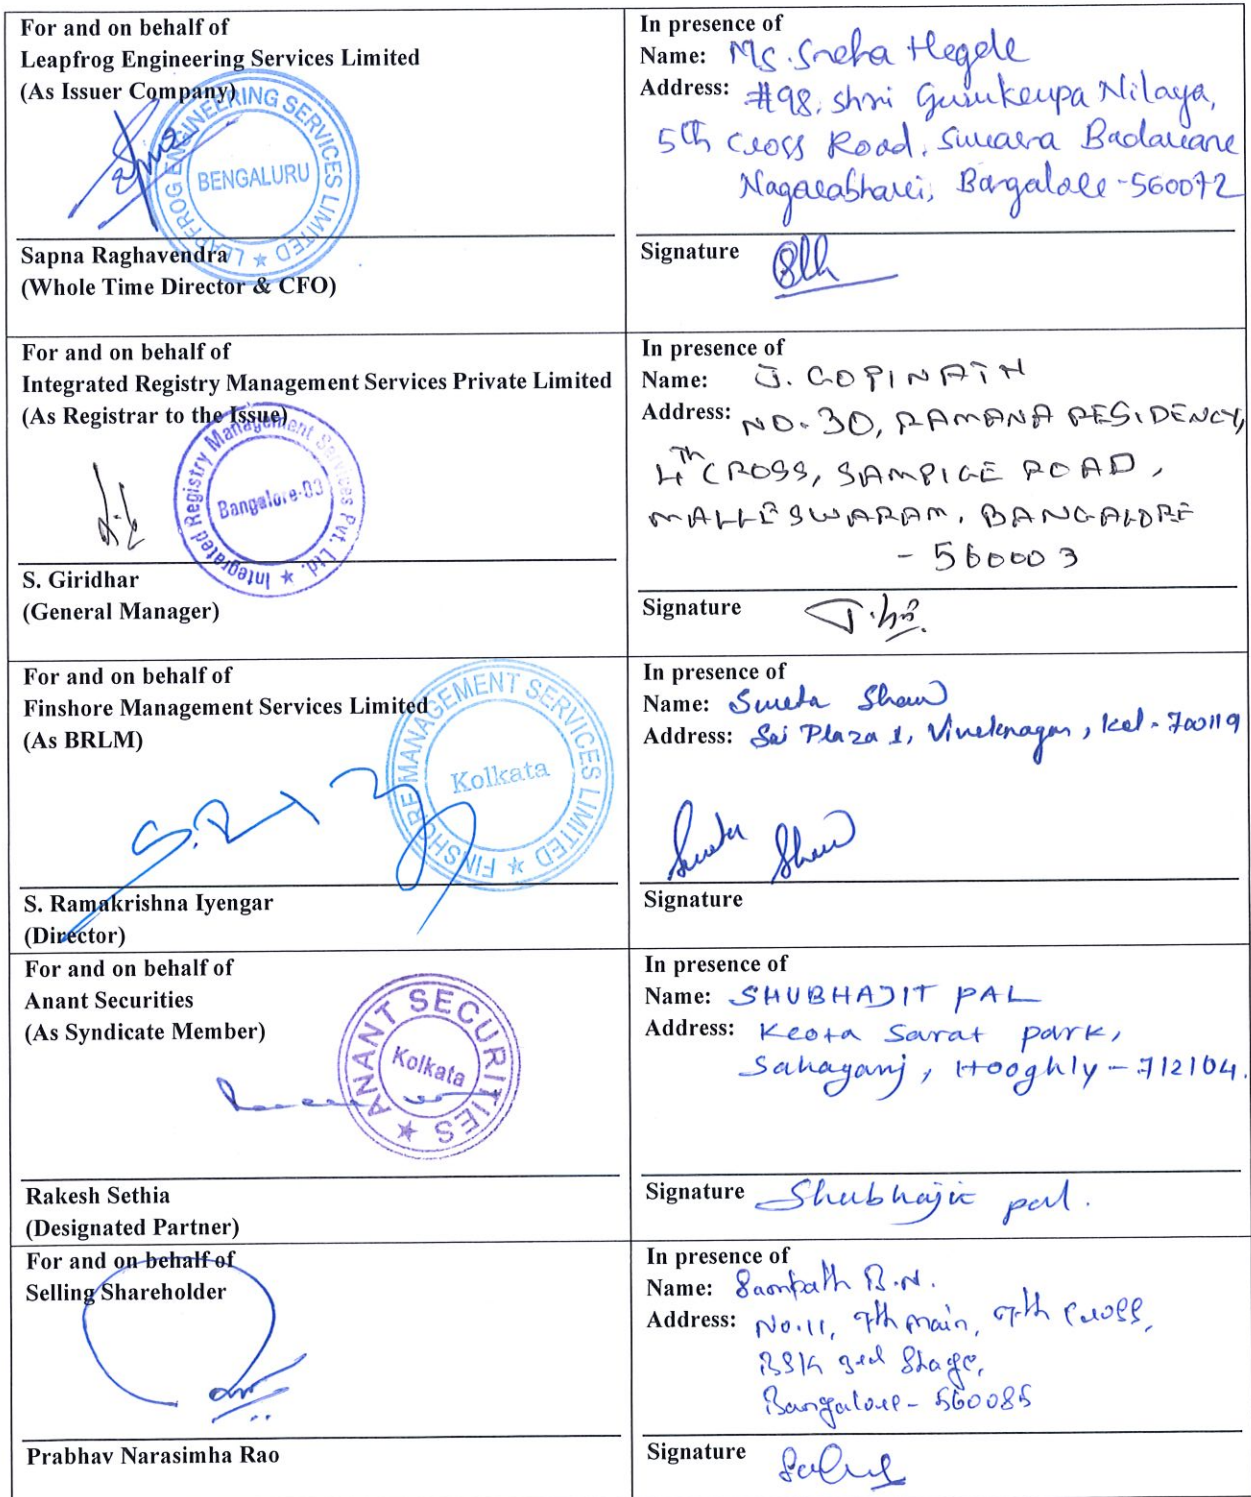 For and on behalf of
Leapfrog Engineering Services Limited
(As Issuer Company)
LEAPFROG ENGINEERING SERVICES LIMITED ★
BENGALURU
Sapna Raghavendra
(Whole Time Director & CFO)
In presence of
Name: Ms. Sneha Hegde
Address: #98, Shri Gurukrupa Nilaya,
5th Cross Road, Badavane
Nagarabhavi, Bangalore-560072
Signature
For and on behalf of
Integrated Registry Management Services Private Limited
(As Registrar to the Issue)
Integrated Registry Management Services Pvt. Ltd. ★
Bangalore-03
S. Giridhar
(General Manager)
In presence of
Name: J. GOPINATH
Address: NO. 30, RAMANA RESIDENCY,
4th CROSS, SAMPIGE ROAD,
MALLESWARAM, BANGALORE
- 560003
Signature
For and on behalf of
Finshore Management Services Limited
(As BRLM)
FINSHORE MANAGEMENT SERVICES LIMITED ★
Kolkata
S. Ramakrishna Iyengar
(Director)
In presence of
Name: Sweta Shaw
Address: Sai Plaza 1, Viveknagar, Kol-700119
Sweta Shaw
Signature
For and on behalf of
Anant Securities
(As Syndicate Member)
ANANT SECURITIES ★
Kolkata
Rakesh Sethia
(Designated Partner)
In presence of
Name: SHUBHAJIT PAL
Address: Keota Sarat park,
Sahaganj, Hooghly-712104.
Signature Shubhajit pal.
For and on behalf of
Selling Shareholder
Prabhav Narasimha Rao
In presence of
Name: Sampath B.N.
Address: No.11, 7th main, 7th Cross,
BSK 3rd Stage,
Bangalore - 560085
Signature